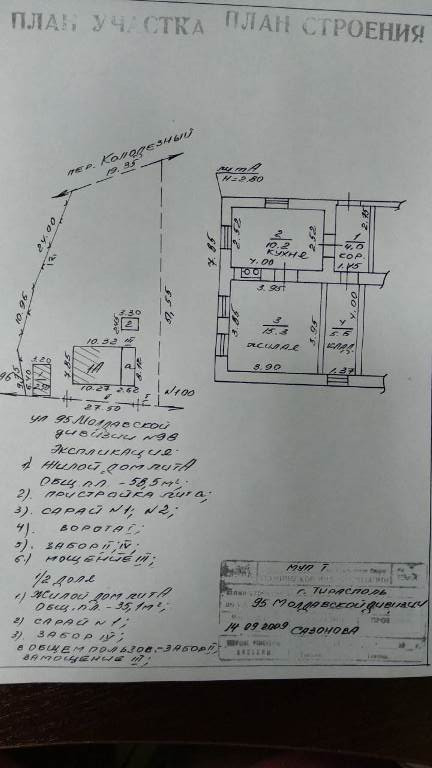 ПЛАН УЧАСТКА ПЛАН СТРОЕНИЯ
ПЕР. КОЛОДЕЗНЫЙ
19.35
24.00
10.96
51.55
3.30
2.45
2
10.32
III
7.85
1А
а
8.12
10.27
2.62
3.20
II
I
27.50
N100
лит А
H=2.80
7.85
2.52
2
10.2
КУХНЯ
4.00
2.52
1
4.0
КОР.
1.45
2.75
3.95
3.85
3
15.3
ЖИЛАЯ
3.95
3.90
4.00
4
5.6
КЛАД.
1.37
УЛ 95 МОЛДАВСКОЙ
ДИВИЗИИ N98
ЭКСПЛИКАЦИЯ:
1) ЖИЛОЙ ДОМ ЛИТ А
ОБЩ. ПЛ. - 58,5 м²;
2). ПРИСТРОЙКА ЛИТ а;
3). САРАЙ N1, N2;
4). ВОРОТА I;
5). ЗАБОР II, IV;
6.) МОЩЕНИЕ III;
1/2 ДОЛЯ
1.) ЖИЛОЙ ДОМ ЛИТ А
ОБЩ. ПЛ. - 35,1 м²;
2) САРАЙ N1;
3). ЗАБОР IV;
В ОБЩЕМ ПОЛЬЗОВ. - ЗАБОР II;
ЗАМОЩЕНИЕ III;
МУП Т.
г. ТИРАСПОЛЬ
95 МОЛДАВСКОЙ ДИВИЗИИ
14 09 2009 САЗОНОВА